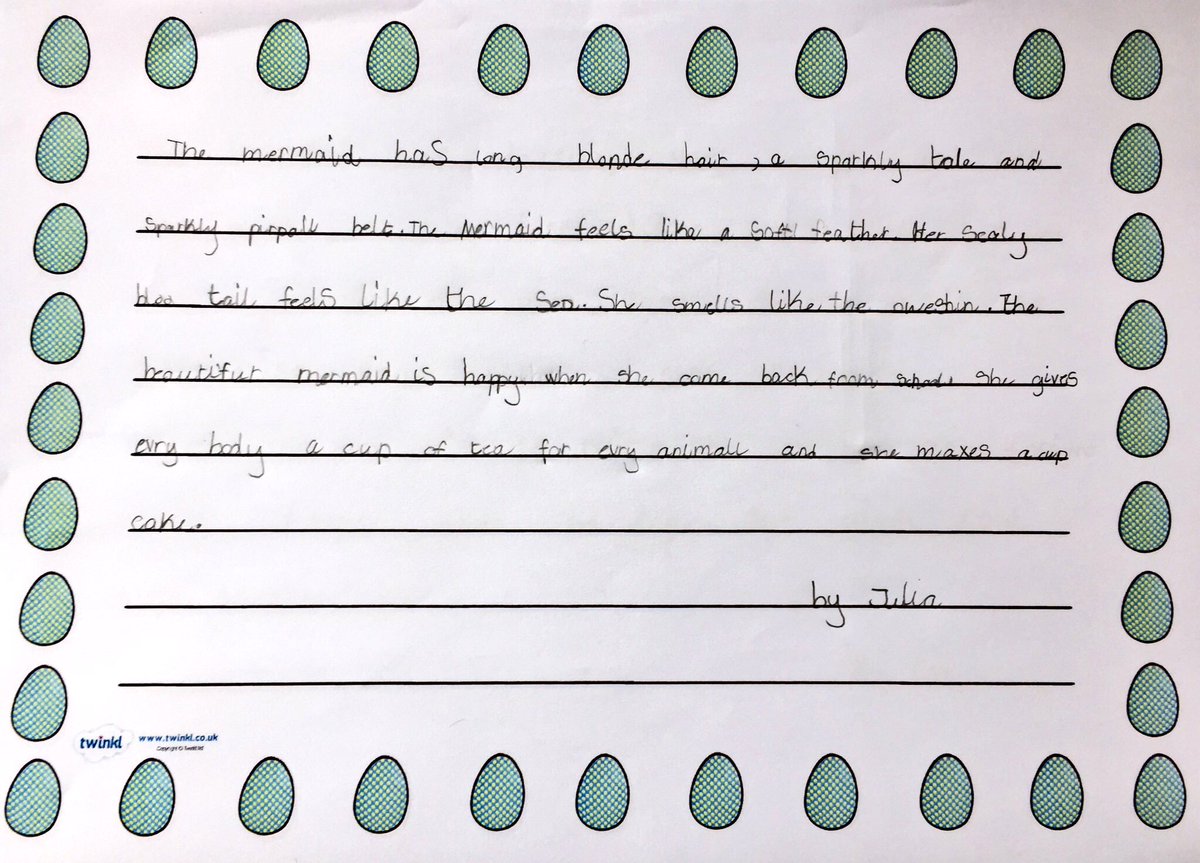 The mermaid has long blonde hair, a sparkly tale and
sparkly pirpall belt. The mermaid feels like a soft feather. Her scaly
bloo tail feels like the sea. She smells like the oweshin. The
beautifur mermaid is happy when she came back from school she gives
evry body a cup of tea for evry animall and she maxes a cup
cake.
by Julia
twinkl www.twinkl.co.uk
Copyright © Twinkl ltd